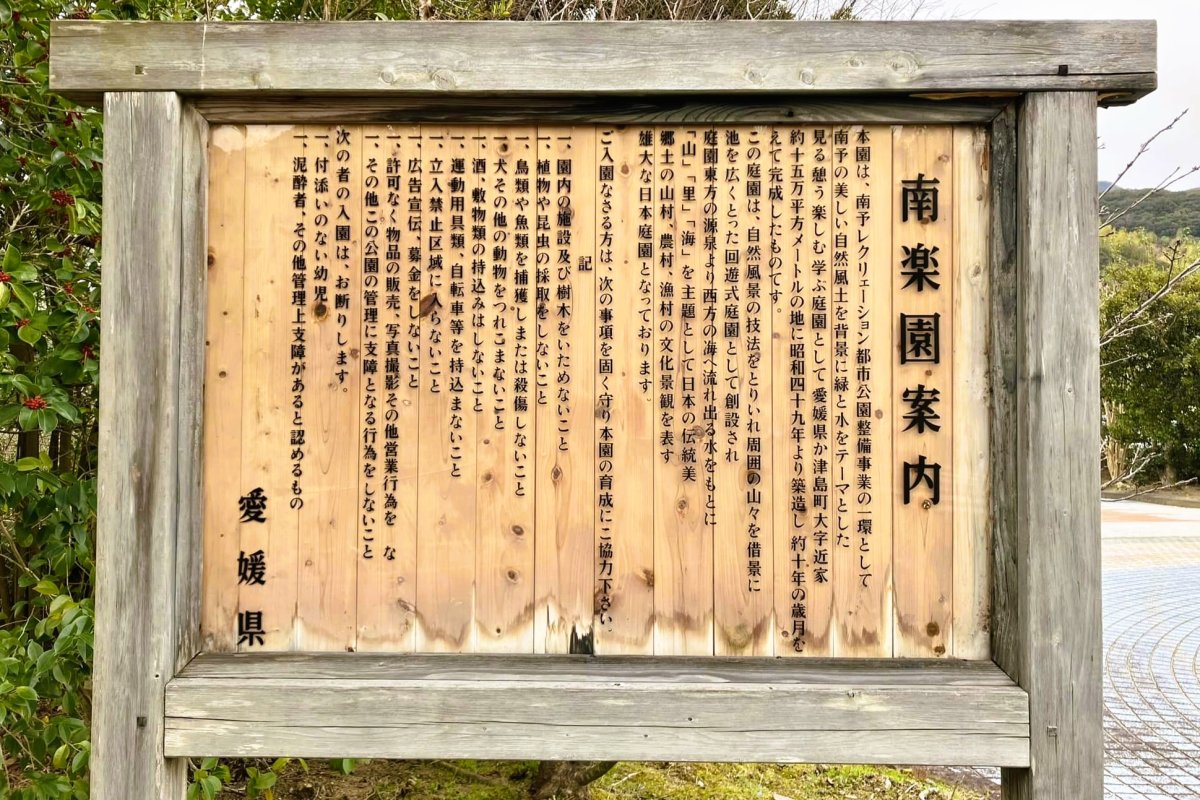 南楽園案内
本園は、南予レクリェーション都市公園整備事業の一環として
南予の美しい自然風土を背景に緑と水をテーマとした
見る憩う楽しむ学ぶ庭園として愛媛県か津島町大字近家
約十五万平方メートルの地に昭和四十九年より築造し約十年の歳月を
えて完成したものてす。
この庭園は、自然風景の技法をとりいれ周囲の山々を借景に
池を広くとった回遊式庭園として創設され
庭園東方の源泉より西方の海へ流れ出る水をもとに
「山」「里」「海」を主題として日本の伝統美
郷土の山村、農村、漁村の文化景観を表す
雄大な日本庭園となっております。
ご入園なさる方は、次の事項を固く守り本園の育成にこ協力下さい。
記
一、園内の施設及び樹木をいためないこと
一、植物や昆虫の採取をしないこと
一、鳥類や魚類を捕獲しまたは殺傷しないこと
一、犬その他の動物をつれこまないこと
一、酒、敷物類の持込みはしないこと
一、運動用具類、自転車等を持込まないこと
一、立入禁止区域に入らないこと
一、広告宣伝、募金をしないこと
一、許可なく物品の販売、写真撮影その他営業行為を　な
一、その他この公園の管理に支障となる行為をしないこと
次の者の入園は、お断りします。
一、付添いのない幼児
一、泥酔者、その他管理上支障があると認めるもの
愛媛県